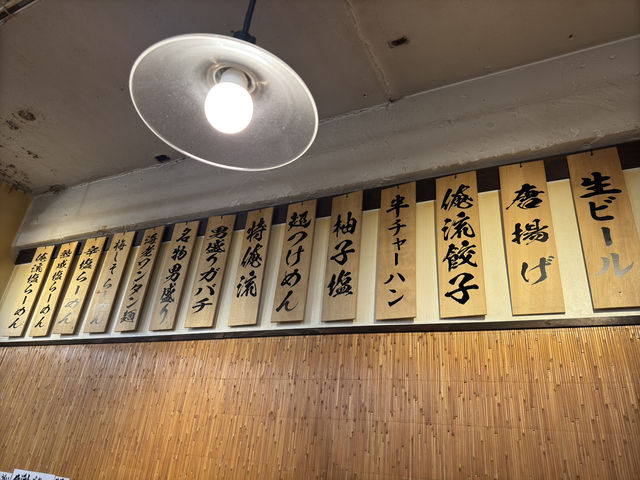 生ビール
唐揚げ
俺流餃子
半チャーハン
柚子塩
麺つけめん
特俺流
男盛りガパチ
名物男盛り
海老ワンタン麺
梅しそらーめん
辛塩らーめん
熟成塩らーめん
俺流塩らーめん